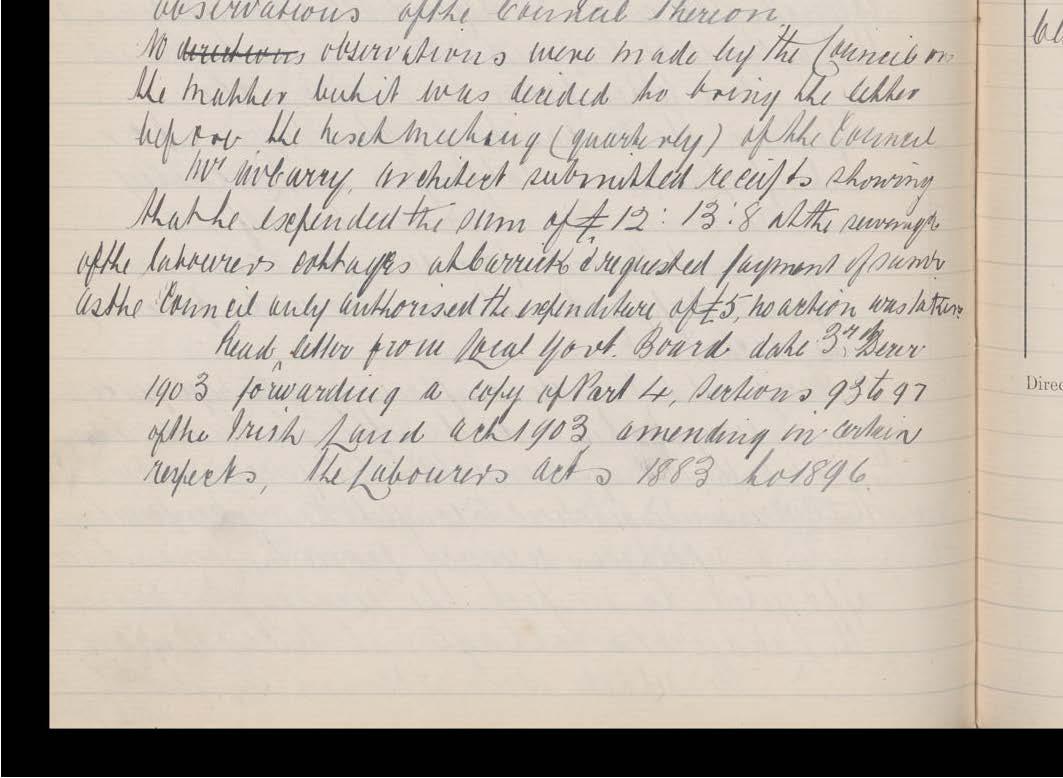 observations of the Council thereon
No directions observations were made by the Council on
the matter but it was decided to bring the letter
before the next meeting (quarterly) of the Council
Mr McCarry, architect submitted receipts showing
that he expended the sum of £12: 13: 8 at the
of the labourers cottages at Carrick & requested payment of same
as the Council only authorised the expenditure of £5, no action was taken
Read letter from Local Govt. Board date 3rd Decr
1903 forwarding a copy of Part 4, sections 93 to 97
of the Irish Land Act 1903, amending in certain
respects, the Labourers Acts 1883 to 1896.
Direc